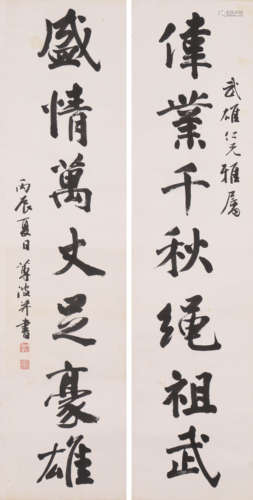 偉業千秋繩祖武
武雄仁兄雅屬
盛情萬丈足豪雄
丙辰夏日